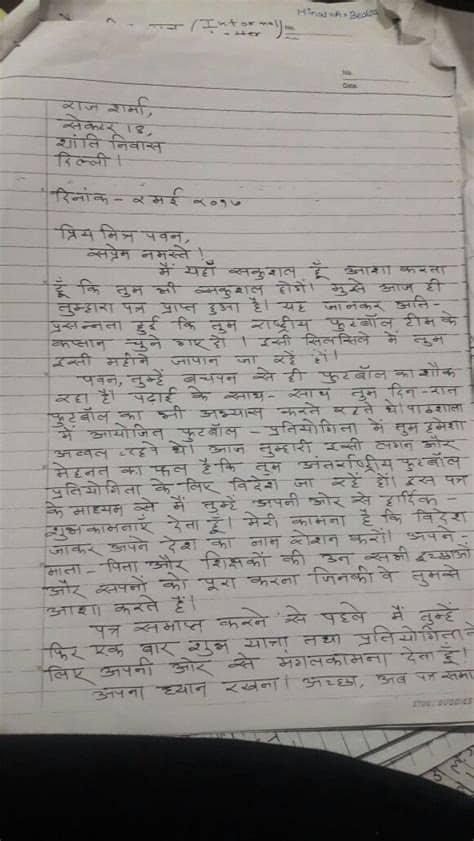 (Informal
No.
Date.
राज शर्मा,
सेक्टर 13,
शांति निवास
दिल्ली।
दिनांक - २ मई २०१७
प्रिय मित्र पवन,
सप्रेम नमस्ते।
मैं यहाँ सकुशल हूँ आशा करता
हूँ कि तुम भी सकुशल होगे। मुझे आज ही
तुम्हारा पत्र प्राप्त हुआ है। यह जानकर अति-
प्रसन्नता हुई कि तुम राष्ट्रीय फुटबॉल टीम के
कप्तान चुने गए हो। इसी सिलसिले में तुम
इसी महीने जापान जा रहे हो।
पवन, तुम्हें बचपन से ही फुटबॉल का शौक
रहा है। पढ़ाई के साथ-साथ तुम दिन-रात
फुटबॉल का भी अभ्यास करते रहते थे। पाठशाला
में आयोजित फुटबॉल - प्रतियोगिता में तुम हमेशा
अव्वल रहते थे। आज तुम्हारी इसी लगन और
मेहनत का फल है कि तुम अंतर्राष्ट्रीय फुटबॉल
प्रतियोगिता के लिए विदेश जा रहे हो। इस पत्र
के माध्यम से मैं तुम्हें अपनी ओर से हार्दिक -
शुभकामनाएं देता हूँ। मेरी कामना है कि विदेश
जाकर अपने देश का नाम रोशन करो। अपने -
माता - पिता और शिक्षकों की उन सभी इच्छाओं
और सपनों को पूरा करना जिनकी वे तुमसे
आशा करते हैं।
पत्र समाप्त करने से पहले मैं तुम्हें
फिर एक बार शुभ यात्रा तथा प्रतियोगिता के
लिए अपनी ओर से मंगलकामना देता हूँ।
अपना ध्यान रखना। अच्छा, अब पत्र समा